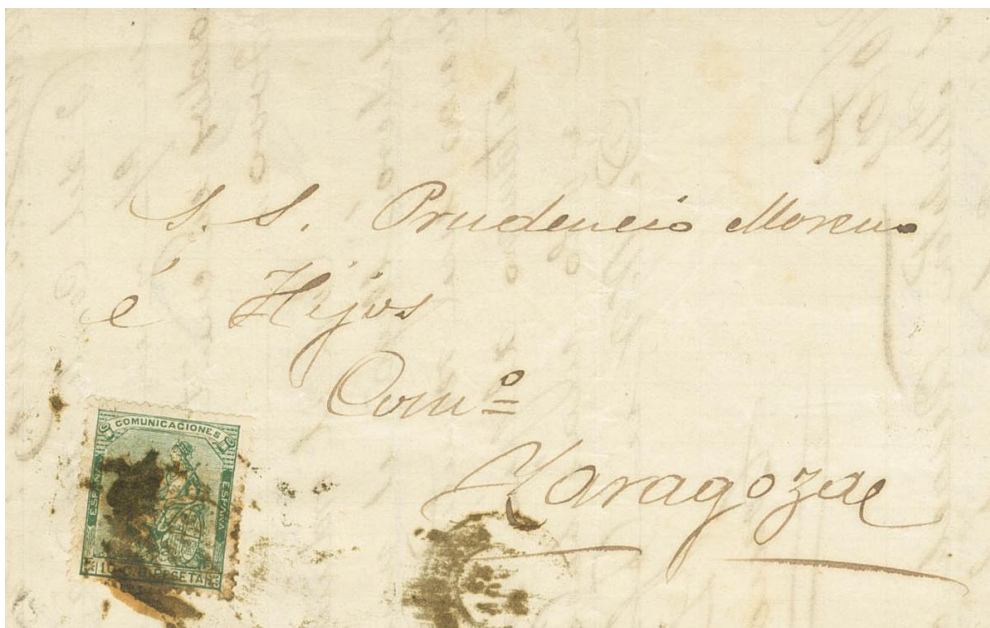 S. S. Prudencio Moreno
é Hijos
Com.º
Zaragoza
COMUNICACIONES
ESPAÑA
ESPAÑA
PESETA